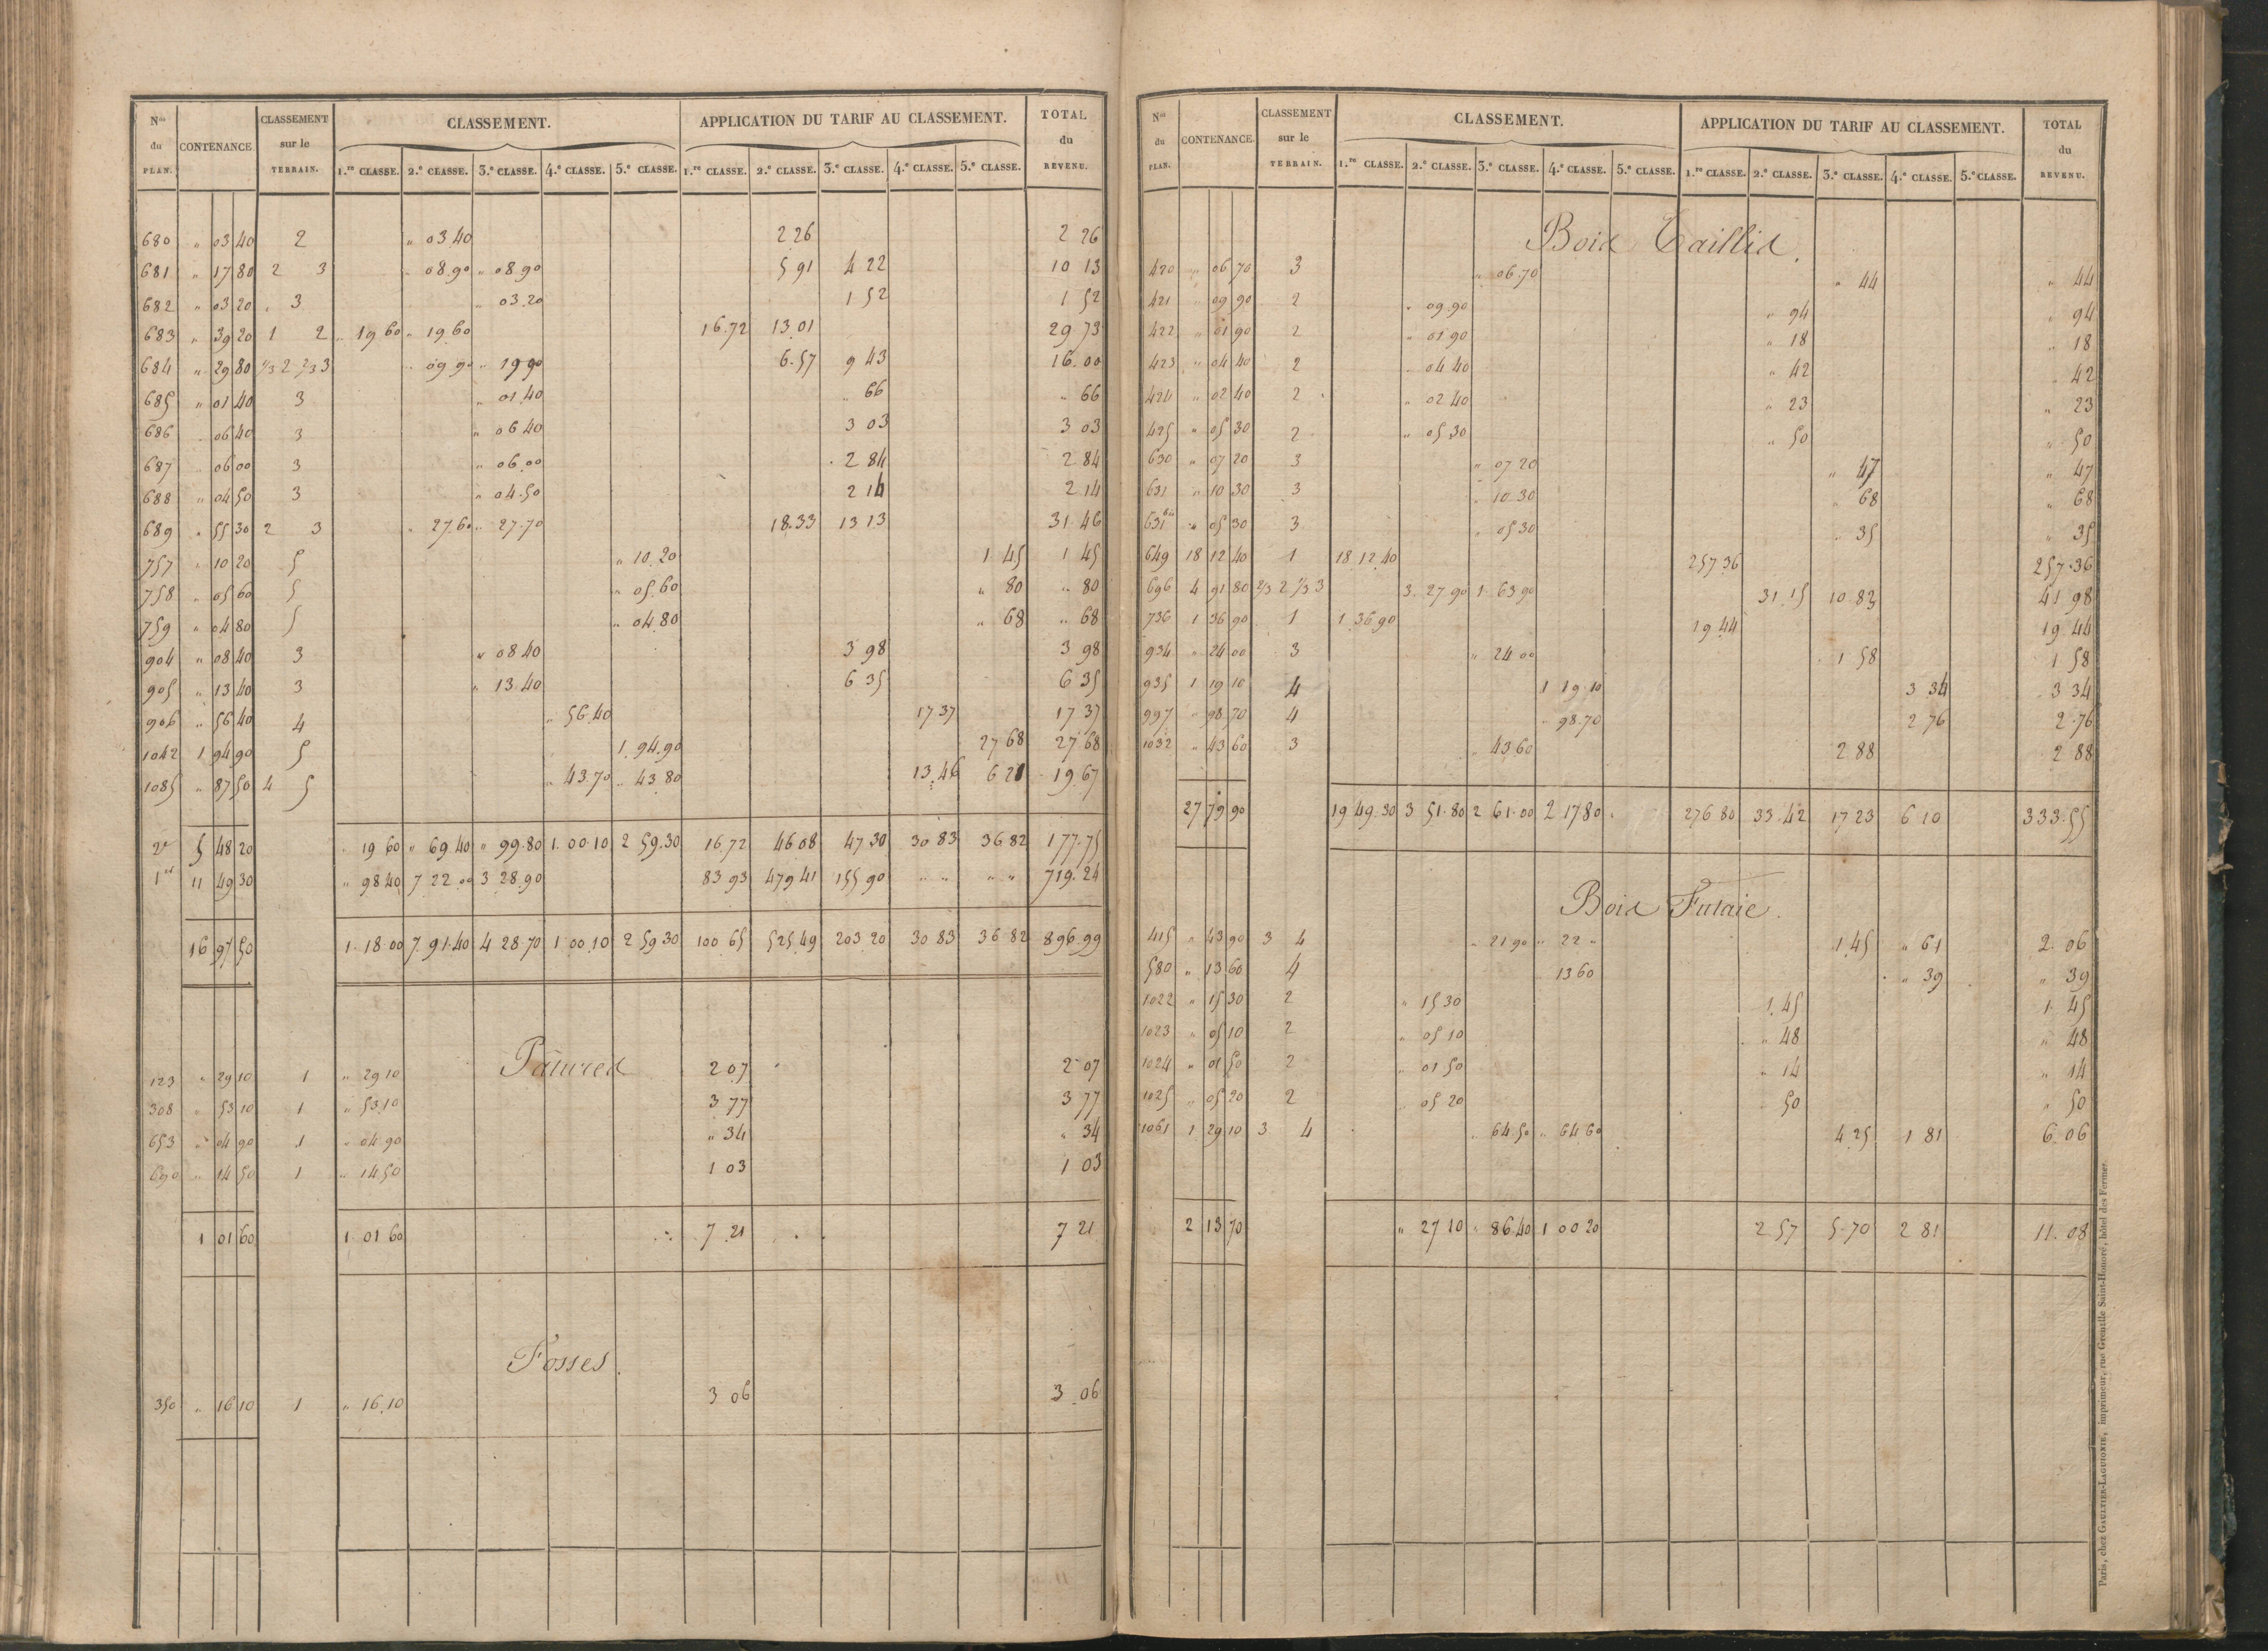 Nos du PLAN. CONTENANCE CLASSEMENT sur le TERRAIN. CLASSEMENT. APPLICATION DU TARIF AU CLASSEMENT. TOTAL du REVENU.
1.re CLASSE. 2.e CLASSE. 3.e CLASSE. 4.e CLASSE. 5.e CLASSE. 1.re CLASSE. 2.e CLASSE. 3.e CLASSE. 4.e CLASSE. 5.e CLASSE.
680 " 03 40 2 " 03.40 2 26 2 26
681 " 17 80 2 3 " 08.90 " 08 90 5 91 4 22 10 13
682 " 03 20 3 " 03.20 1 52 1 52
683 " 39 20 1 2 " 19 60 " 19.60 16.72 13.01 29 73
684 " 29 80 1/3 2 2/3 3 " 09 90 " 19 90 6.57 9 43 16.00
685 " 01 40 3 " 01.40 " 66 " 66
686 " 06 40 3 " 06 40 3 03 3 03
687 " 06 00 3 " 06.00 2 84 2 84
688 " 04 50 3 " 04.50 2 14 2 14
689 " 55 30 2 3 " 27.60 " 27.70 18.33 13 13 31.46
757 " 10 20 5 " 10.20 1 45 1 45
758 " 05 60 5 " 05.60 " 80 " 80
759 " 04 80 5 " 04.80 " 68 " 68
904 " 08 40 3 " 08 40 3 98 3 98
905 " 13 40 3 " 13.40 6 35 6 35
906 " 56 40 4 " 56.40 17 37 17 37
1042 1 94 90 5 1.94.90 27 68 27 68
1085 " 87 50 4 5 " 43.70 " 43.80 13.46 6 21 19 67
2e 5 48 20 " 19 60 " 69.40 " 99.80 1.00.10 2 59.30 16.72 46 08 47 30 30 83 36 82 177.75
1re 11 49 30 " 98 40 7 22 00 3 28.90 83 93 479 41 155 90 " " " " 719.24
16 97 50 1.18 00 7.91.40 4 28.70 1 00 10 2 59 30 100 65 525.49 203 20 30 83 36 82 896.99
Pâtures
123 " 29 10 1 " 29 10 2 07 2 07
308 " 53 10 1 " 53.10 3 77 3 77
653 " 04 90 1 " 04.90 " 34 " 34
690 " 14 50 1 " 14.50 1 03 1 03
1 01 60 1.01 60 7.21 7 21
Fosses.
350 " 16 10 1 " 16.10 3 06 3 06
Nos du PLAN. CONTENANCE. CLASSEMENT sur le TERRAIN. CLASSEMENT. APPLICATION DU TARIF AU CLASSEMENT. TOTAL du REVENU.
1.re CLASSE. 2.e CLASSE. 3.e CLASSE. 4.e CLASSE. 5.e CLASSE. 1.re CLASSE. 2.e CLASSE. 3.e CLASSE. 4.e CLASSE. 5.e CLASSE.
Bois Taillis.
420 " 06 70 3 " 06.70 " 44 " 44
421 " 09 90 2 " 09.90 " 94 " 94
422 " 01 90 2 " 01 90 " 18 " 18
423 " 04 40 2 " 04 40 " 42 " 42
424 " 02 40 2 " 02 40 " 23 " 23
425 " 05 30 2 " 05.30 " 50 " 50
630 " 07 20 3 " 07 20 " 47 " 47
631 " 10 30 3 " 10.30 " 68 " 68
631bis " 05 30 3 " 05 30 " 35 " 35
649 18 12 40 1 18.12.40 257 36 257.36
696 4 91 80 2/3 2 1/3 3 3.27 90 1.63 90 31.15 10 83 41 98
736 1 36 90 1 1.36 90 19.44 19 44
934 " 24 00 3 " 24 00 1 58 1 58
935 1 19 10 4 1 19.10 3 34 3 34
997 " 98 70 4 " 98.70 2 76 2.76
1032 " 43 60 3 " 43.60 2 88 2 88
27 79 90 19 49.30 3 51.80 2 61.00 2 17 80 276 80 33.42 17 23 6 10 333.55
Bois Futaie.
415 " 43 90 3 4 " 21 90 " 22 " 1.45 " 61 2.06
580 " 13 60 4 13 60 " 39 " 39
1022 " 15 30 2 " 15 30 1.45 1.45
1023 " 05 10 2 " 05 10 " 48 " 48
1024 " 01 50 2 " 01 50 " 14 " 14
1025 " 05 20 2 " 05 20 " 50 " 50
1061 1 29 10 3 4 " 64.50 " 64.60 4.25 1 81 6.06
2 13 70 " 27 10 " 86.40 1 00 20 2 57 5.70 2 81 11.08
Paris, chez GAULTIER-LAGUIONIE, imprimeur, rue Grenelle Saint-Honoré, hôtel des Fermes.